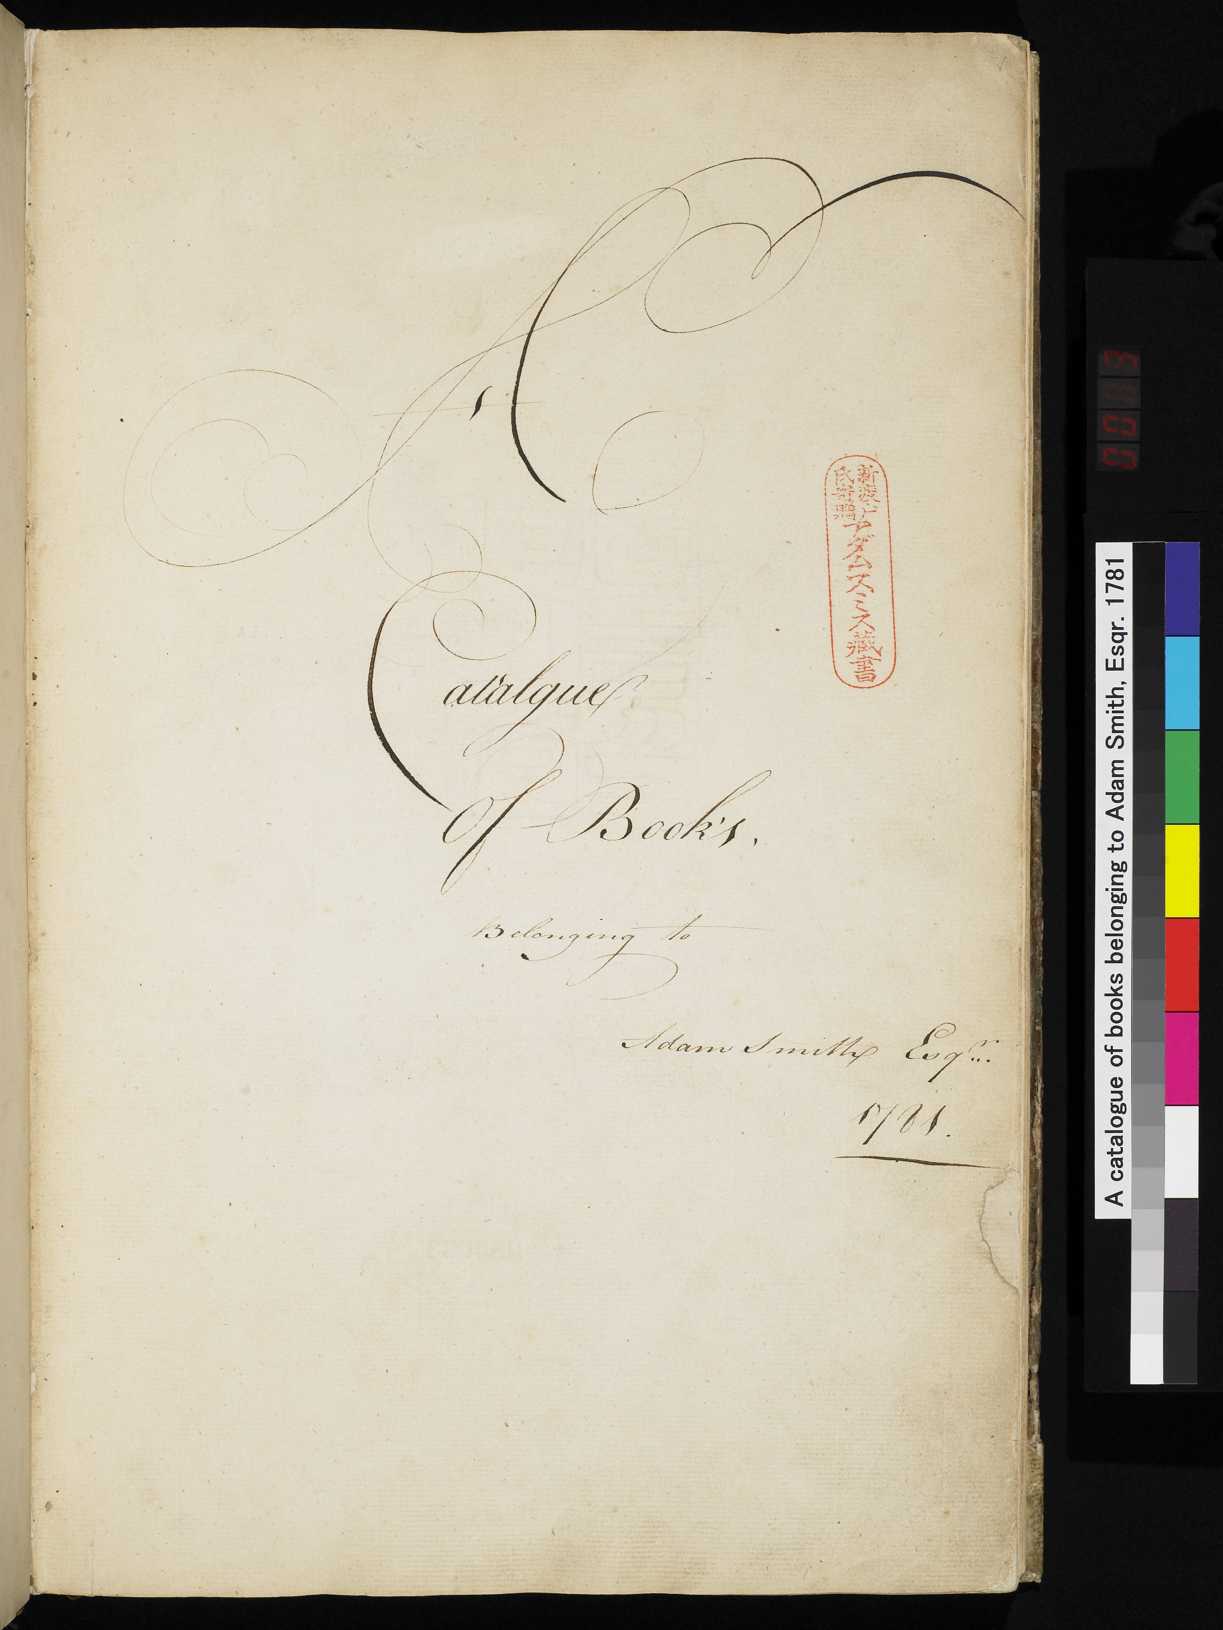 A
Catalgue
Of Books.
Belonging to
Adam Smith Esqr.
1781.
新渡戸
氏寄贈
アダムスミス蔵書
A catalogue of books belonging to Adam Smith, Esqr. 1781
0003